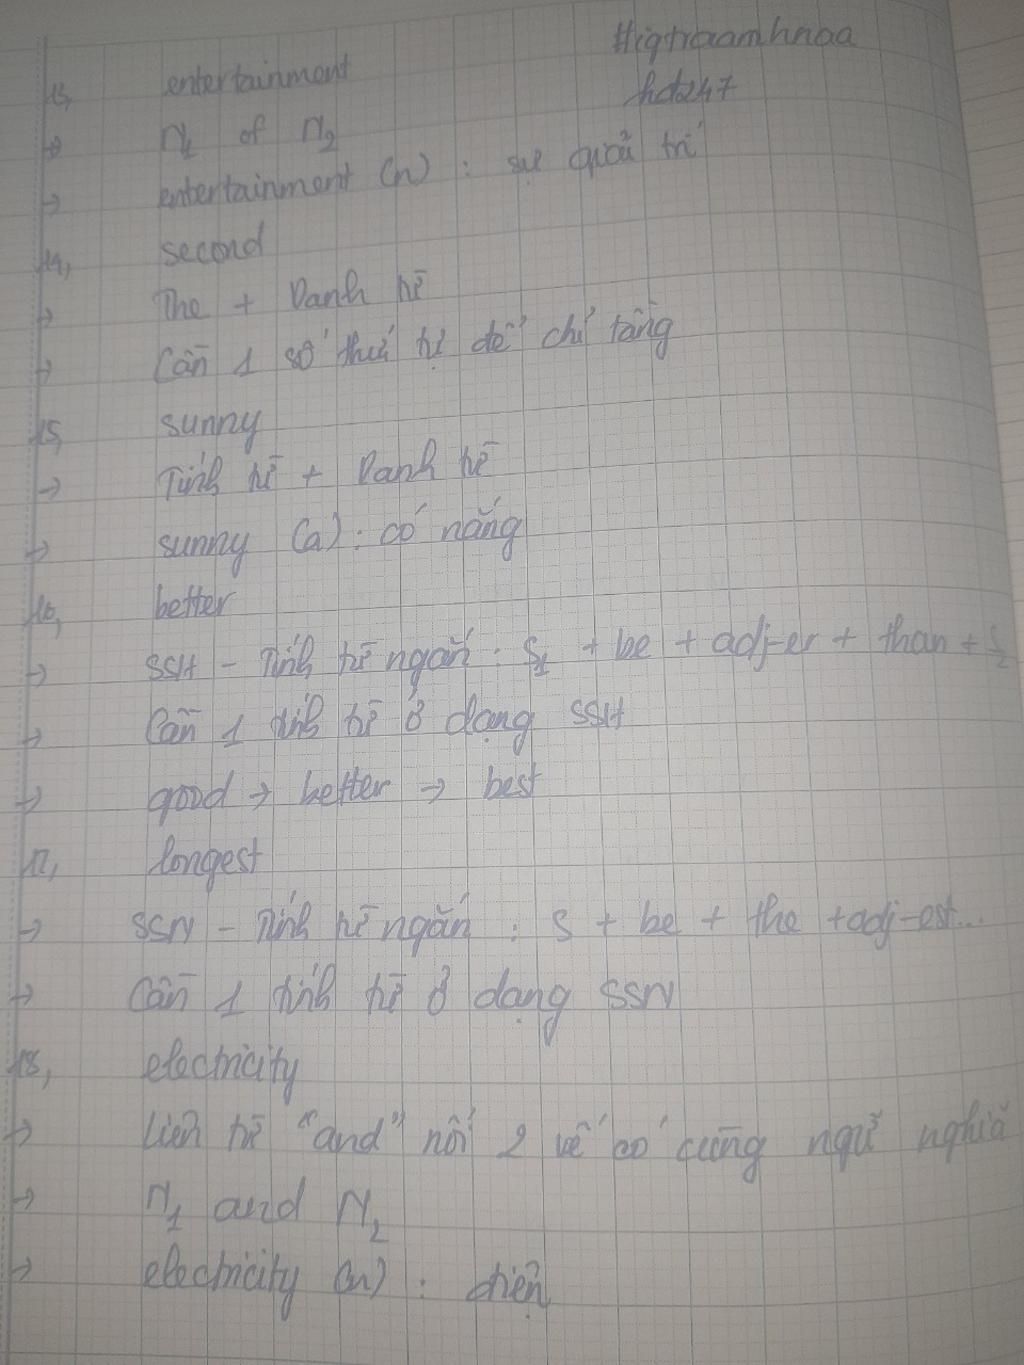 #iqtraamhnaa
13, entertainment
hdz47
→ N1 of N2
→ entertainment (n) : sự giải trí
14, second
→ The + Danh từ
→ Cần 1 số thứ tự để chỉ tầng
15, sunny
→ Tính từ + Danh từ
→ sunny (a) : có nắng
16, better
→ SSH - Tính từ ngắn : S1 + be + adj-er + than + S2
→ Cần 1 tính từ ở dạng SSH
→ good → better → best
17, longest
→ SSN - Tính từ ngắn : S + be + the + adj-est...
→ Cần 1 tính từ ở dạng SSN
18, electricity
→ Liên từ "and" nối 2 vế có cùng ngữ nghĩa
→ N1 and N2
→ electricity (n) : điện